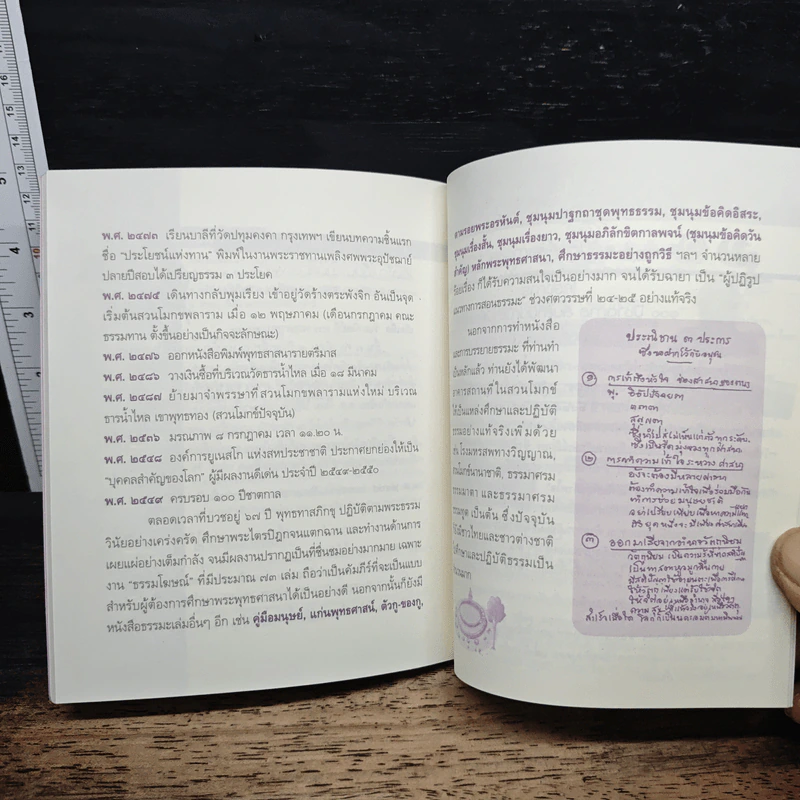 พ.ศ. ๒๔๗๓ เรียนบาลีที่วัดปทุมคงคา กรุงเทพฯ เขียนบทความชิ้นแรก
ชื่อ "ประโยชน์แห่งทาน" พิมพ์ในงานพระราชทานเพลิงศพพระอุปัชฌาย์
ปลายปีสอบได้เปรียญธรรม ๓ ประโยค
พ.ศ. ๒๔๗๕ เดินทางกลับพุมเรียง เข้าอยู่วัดร้างตระพังจิก อันเป็นจุด
เริ่มต้นสวนโมกขพลาราม เมื่อ ๑๒ พฤษภาคม (เดือนกรกฎาคม คณะ
ธรรมทาน ตั้งขึ้นอย่างเป็นกิจจะลักษณะ)
พ.ศ. ๒๔๗๖ ออกหนังสือพิมพ์พุทธสาสนารายตรีมาส
พ.ศ. ๒๔๘๖ วางเงินซื้อที่บริเวณวัดธารน้ำไหล เมื่อ ๑๘ มีนาคม
พ.ศ. ๒๔๘๗ ย้ายมาจำพรรษาที่ สวนโมกขพลารามแห่งใหม่ บริเวณ
ธารน้ำไหล เขาพุทธทอง (สวนโมกข์ปัจจุบัน)
พ.ศ. ๒๕๓๖ มรณภาพ ๘ กรกฎาคม เวลา ๑๑.๒๐ น.
พ.ศ. ๒๕๔๘ องค์การยูเนสโก แห่งสหประชาชาติ ประกาศยกย่องให้เป็น
"บุคคลสำคัญของโลก" ผู้มีผลงานดีเด่น ประจำปี ๒๕๔๙-๒๕๕๐
พ.ศ. ๒๕๔๙ ครบรอบ ๑๐๐ ปีชาตกาล
ตลอดเวลาที่บวชอยู่ ๖๗ ปี พุทธทาสภิกขุ ปฏิบัติตามพระธรรม
วินัยอย่างเคร่งครัด ศึกษาพระไตรปิฎกจนแตกฉาน และทำงานด้านการ
เผยแผ่อย่างเต็มกำลัง จนมีผลงานปรากฏเป็นที่ชื่นชมอย่างมากมาย เฉพาะ
งาน "ธรรมโฆษณ์" ที่มีประมาณ ๗๓ เล่ม ถือว่าเป็นคัมภีร์ที่จะเป็นแบบ
สำหรับผู้ต้องการศึกษาพระพุทธศาสนาได้เป็นอย่างดี นอกจากนั้นก็ยังมี
หนังสือธรรมะเล่มอื่นๆ อีก เช่น คู่มือมนุษย์, แก่นพุทธศาสน์, ตัวกู-ของกู,
ตามรอยพระอรหันต์, ชุมนุมปาฐกถาชุดพุทธธรรม, ชุมนุมข้อคิดอิสระ,
ชุมนุมเรื่องสั้น, ชุมนุมเรื่องยาว, ชุมนุมอภิลักขิตกาลพจน์ (ชุมนุมข้อคิดวัน
สำคัญ) หลักพระพุทธศาสนา, ศึกษาธรรมะอย่างถูกวิธี ฯลฯ จำนวนหลาย
ร้อยเรื่อง ก็ได้รับความสนใจเป็นอย่างมาก จนได้รับฉายา เป็น "ผู้ปฏิรูป
แนวทางการสอนธรรมะ" ช่วงศตวรรษที่ ๒๔-๒๕ อย่างแท้จริง
นอกจากการทำหนังสือ
และการบรรยายธรรมะ ที่ท่านทำ
เป็นหลักแล้ว ท่านยังได้พัฒนา
อาคารสถานที่ในสวนโมกข์
ให้เป็นแหล่งศึกษาและปฏิบัติ
ธรรมอย่างแท้จริงเพิ่มด้วย
เช่น โรงมหรสพทางวิญญาณ,
โมกข์นานาชาติ, ธรรมาศรม
ธรรมมาตา และธรรมาศรม
เป็นต้น ซึ่งปัจจุบัน
ชาวไทยและชาวต่างชาติ
ศึกษาและปฏิบัติธรรมเป็น
มาก
ปณิธาน ๓ ประการ
๑ การเข้าถึงหัวใจ ของศาสนาของตน
๒ การทำความเข้าใจระหว่างศาสนา
๓ ออกมาเสียจากอำนาจวัตถุนิยม